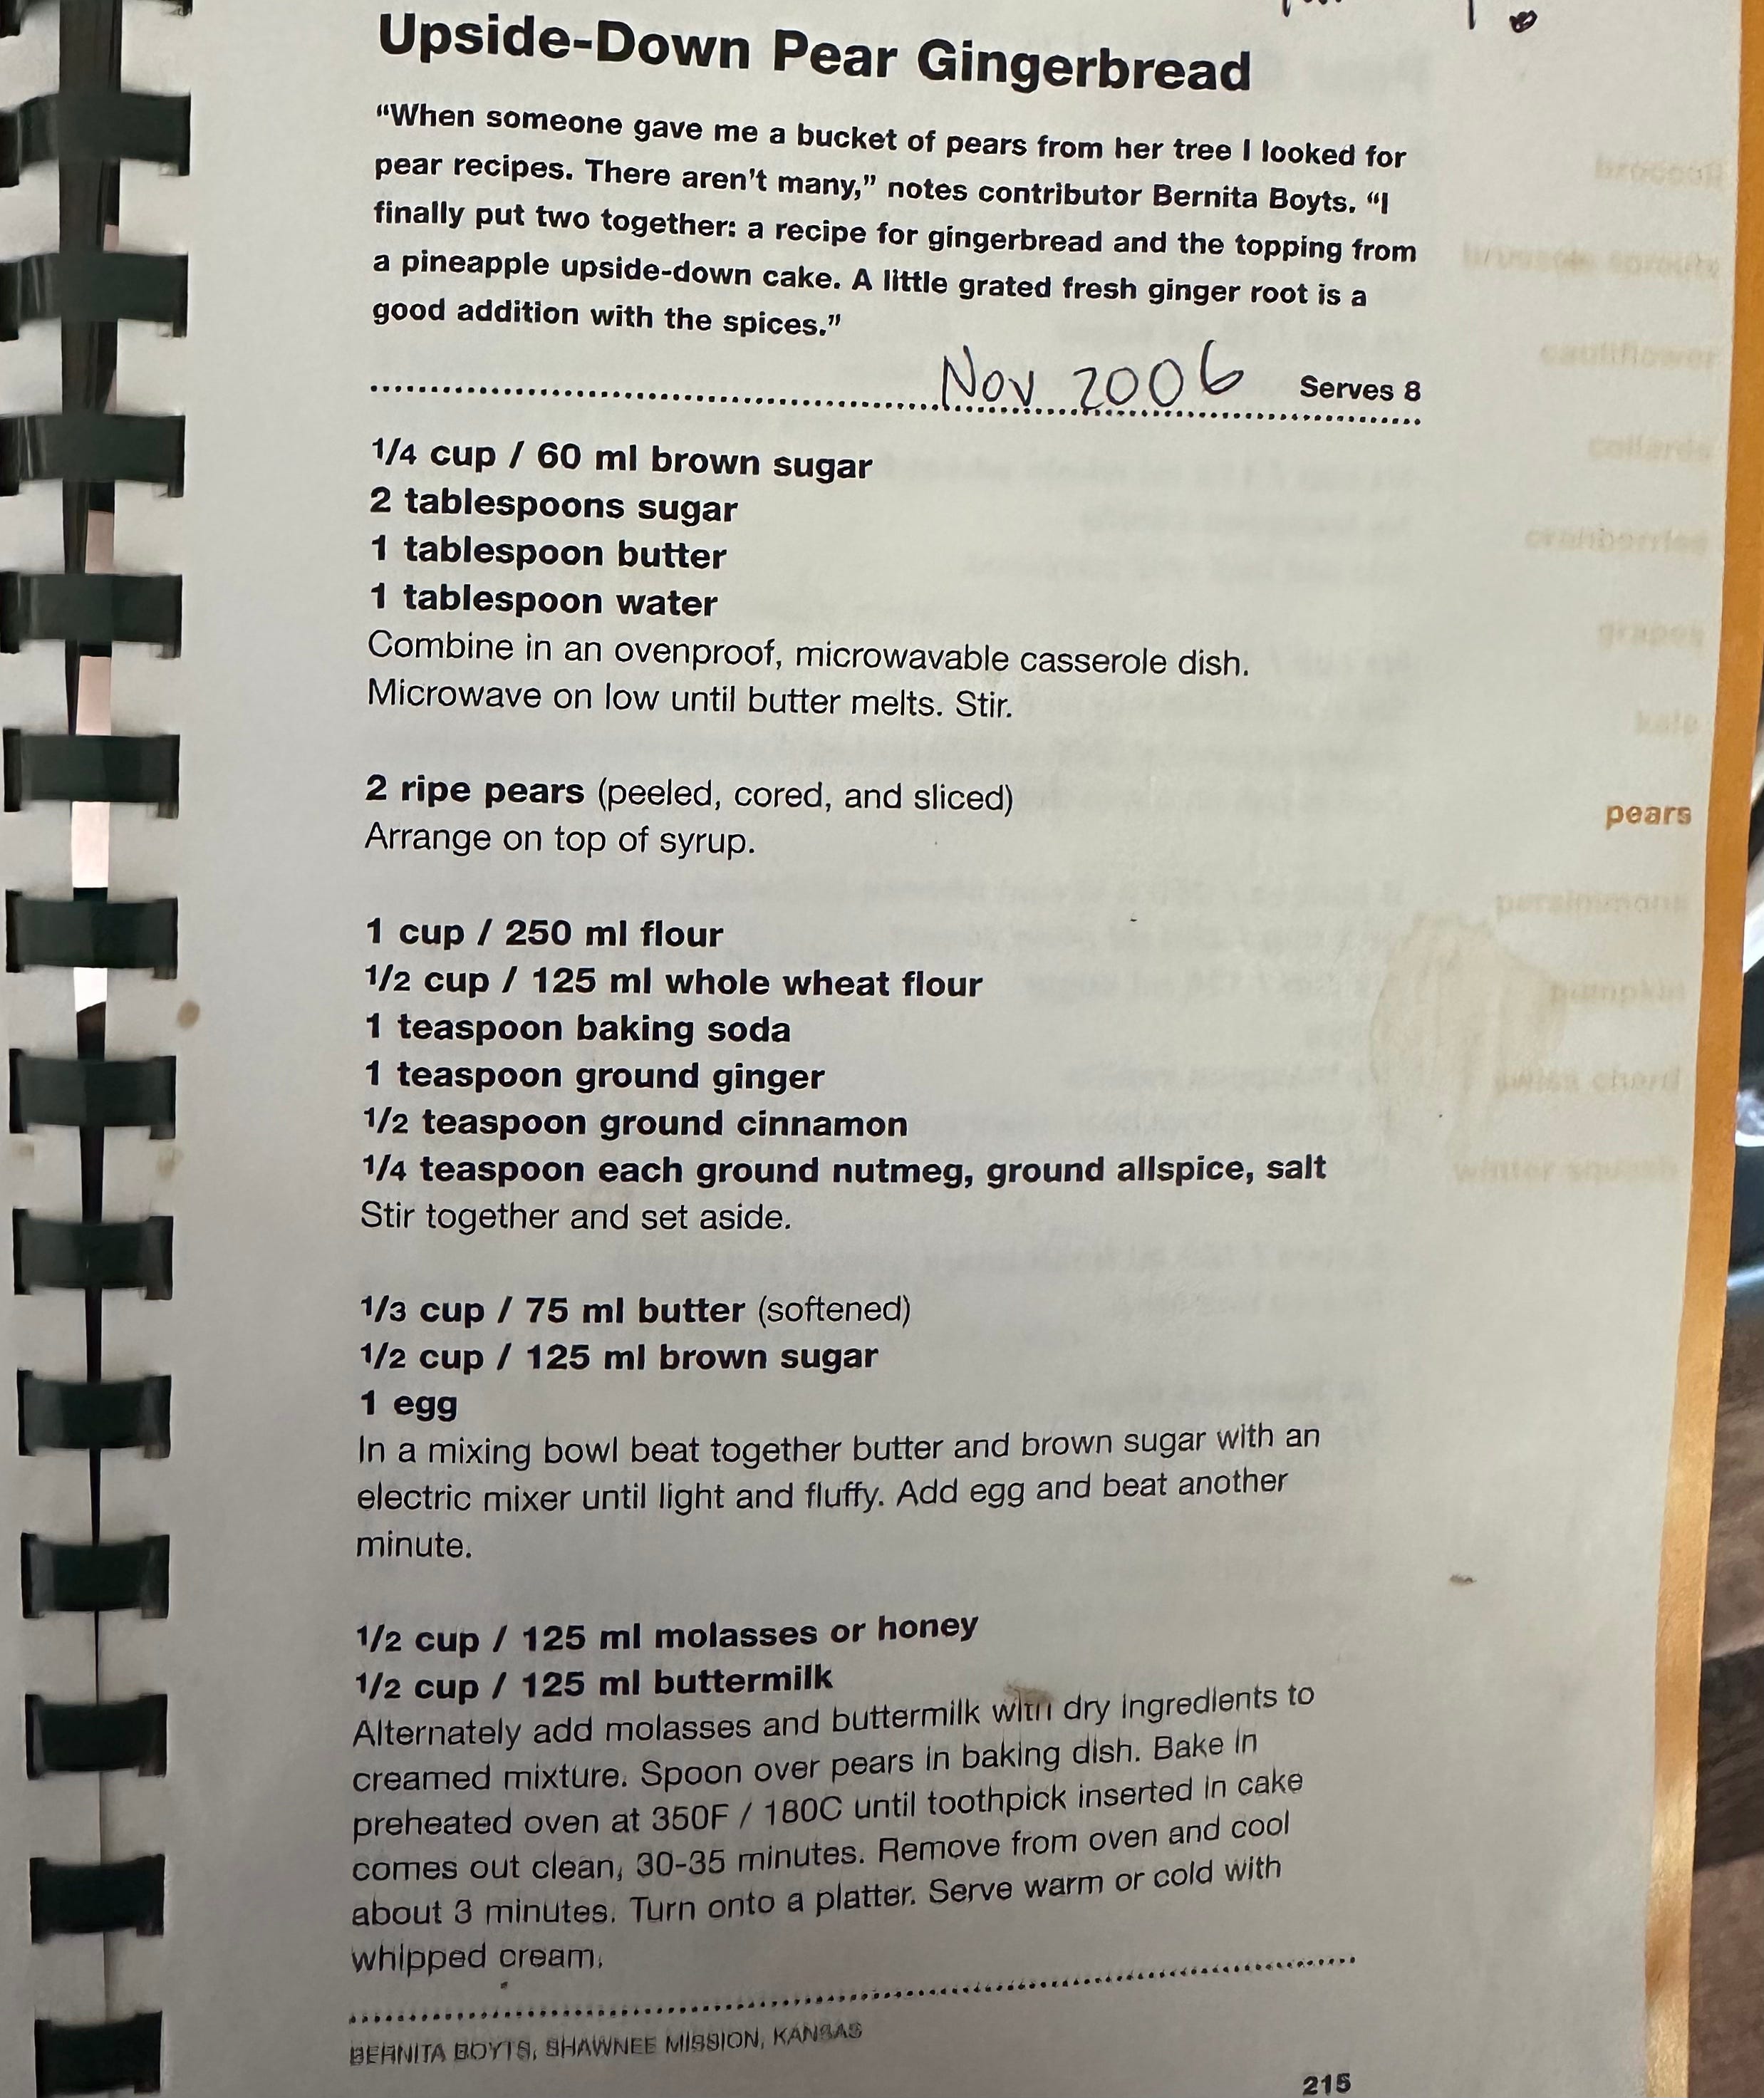 Upside-Down Pear Gingerbread
“When someone gave me a bucket of pears from her tree I looked for
pear recipes. There aren’t many,” notes contributor Bernita Boyts. “I
finally put two together: a recipe for gingerbread and the topping from
a pineapple upside-down cake. A little grated fresh ginger root is a
good addition with the spices.”
Nov 2006 Serves 8
1/4 cup / 60 ml brown sugar
2 tablespoons sugar
1 tablespoon butter
1 tablespoon water
Combine in an ovenproof, microwavable casserole dish.
Microwave on low until butter melts. Stir.
2 ripe pears (peeled, cored, and sliced)
Arrange on top of syrup.
1 cup / 250 ml flour
1/2 cup / 125 ml whole wheat flour
1 teaspoon baking soda
1 teaspoon ground ginger
1/2 teaspoon ground cinnamon
1/4 teaspoon each ground nutmeg, ground allspice, salt
Stir together and set aside.
1/3 cup / 75 ml butter (softened)
1/2 cup / 125 ml brown sugar
1 egg
In a mixing bowl beat together butter and brown sugar with an
electric mixer until light and fluffy. Add egg and beat another
minute.
1/2 cup / 125 ml molasses or honey
1/2 cup / 125 ml buttermilk
Alternately add molasses and buttermilk with dry ingredients to
creamed mixture. Spoon over pears in baking dish. Bake in
preheated oven at 350F / 180C until toothpick inserted in cake
comes out clean, 30-35 minutes. Remove from oven and cool
about 3 minutes. Turn onto a platter. Serve warm or cold with
whipped cream.
BERNITA BOYTS, SHAWNEE MISSION, KANSAS
215
broccoli
brussels sprouts
cauliflower
collards
cranberries
grapes
kale
pears
persimmons
pumpkin
swiss chard
winter squash